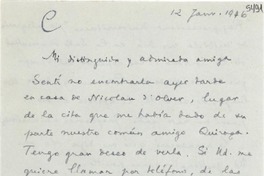 C
12 Janr. 1946
Mi distinguida y admirada amiga
Sentí no encontrarla ayer tarde
en casa de Nicolau d'Olwer, lugar
de la cita que me había dado de su
parte nuestro común amigo Quiroga.
Tengo gran deseo de verla. Si Ud. me
quiere llamar por teléfono, de las